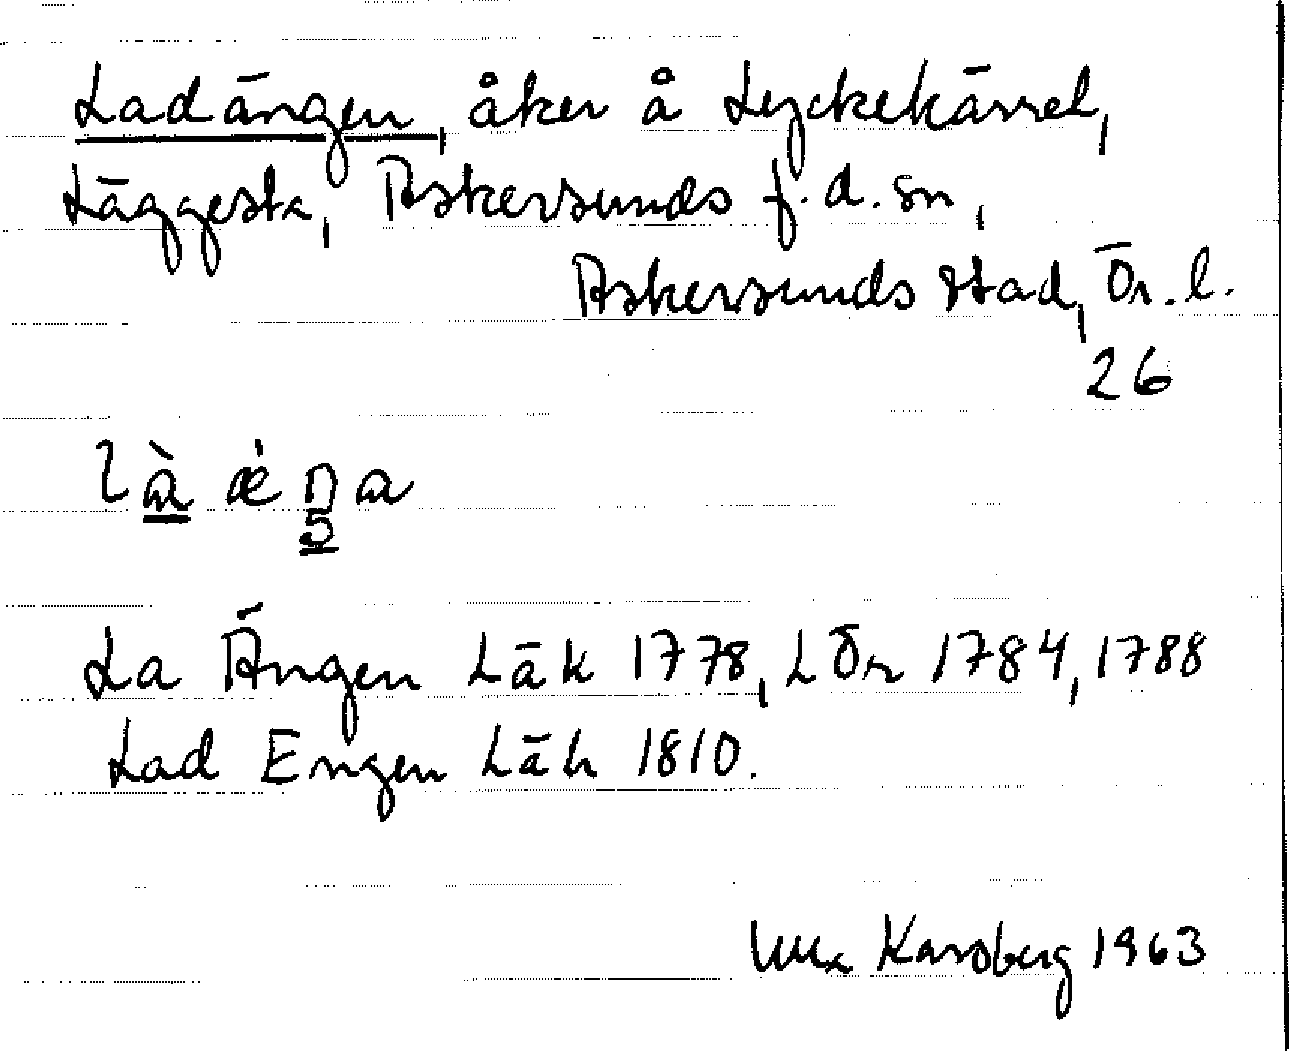 Ladängen, åker å Lyckekärret,
Läggesta, Askersunds f.d. sn,
Askersunds stad, Ör. l.
26
Là æ̀ŋa
5
La Ängen LÄk 1778, LÖr 1784, 1788
Lad Engen LÄh 1810.
Karsberg 1963